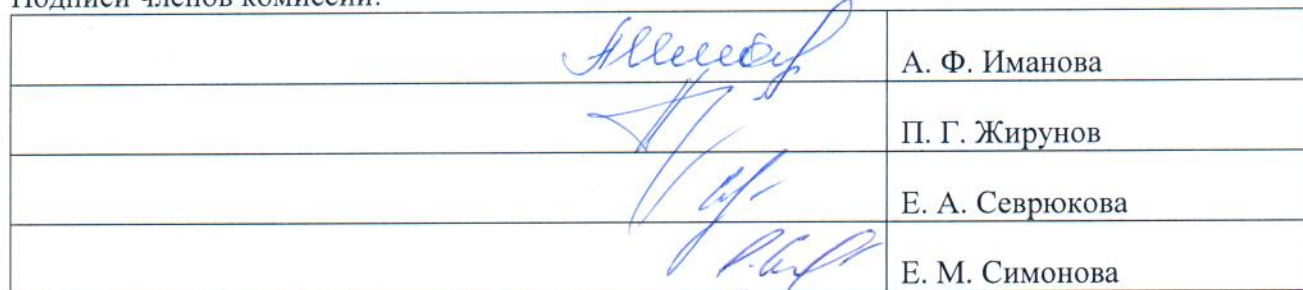 Подписи членов комиссии:
А. Ф. Иманова
П. Г. Жирунов
Е. А. Севрюкова
Е. М. Симонова